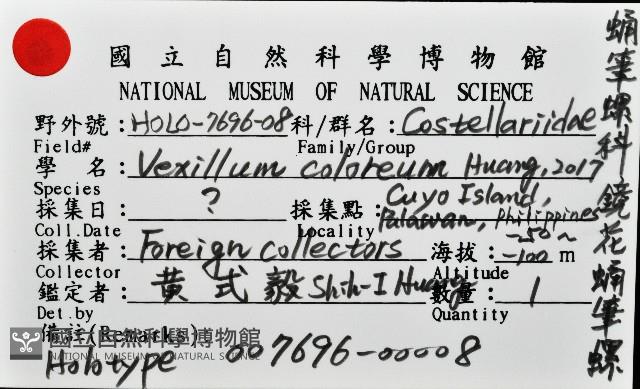 國立自然科學博物館
NATIONAL MUSEUM OF NATURAL SCIENCE
野外號：HOLO-7696-08 科/群名：Costellariidae
Field# Family/Group
學 名：Vexillum coloreum Huang, 2017
Species
採集日：? 採集點：Cuyo Island, Palawan, Philippines
Coll.Date Locality
採集者：Foreign collectors 海拔：-50~-100 m
Collector Altitude
鑑定者：黃式毅 Shih-I Huang 數量：1
Det.by Quantity
備註(Remarks)
Holotype 007696-00008
蛹筆螺科 鏡花蛹筆螺
國立自然科學博物館
NATIONAL MUSEUM OF NATURAL SCIENCE